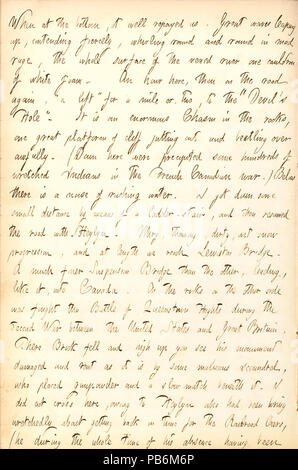 When at the bottom, it well repayed us. Great waves leaping
up, contending fiercely, whirling round and round in mad
rage, the whole surface of the vexed river one cauldron
of white foam. An hour here, then on the road
again, "a lift" for a mile or two, to the "Devil's
Hole". It is an enormous Chasm in the rocks,
one great platform of cliff jutting out and beetling over
awfully. (Down here were precipited some hundreds of
wretched Indians in the French Canadian war.) Below
there is a noise of rushing water. I got down some
small distance by means of a ladder-stair, and then resumed
the road with Heylyn. Many thawing, dirty, wet snow
progression, and at length we reach Lewiston Bridge.
A much finer Suspension Bridge than the other, leading,
like it, into Canada. On the rocks on the other side
was fought the Battle of Queenstown Heights during the
Second War between the United States and Great Britain.
There Brock fell and high up you see his monument
damaged and rent as it is by some malicious scoundrel,
who placed gunpowder and a slow match beneath it. I
did not cross here, owing to Heylyn who had been boring
wretchedly about getting back in time for the Railroad Cars,
(he during the whole time of his absence having been
alamy
PB6M6P